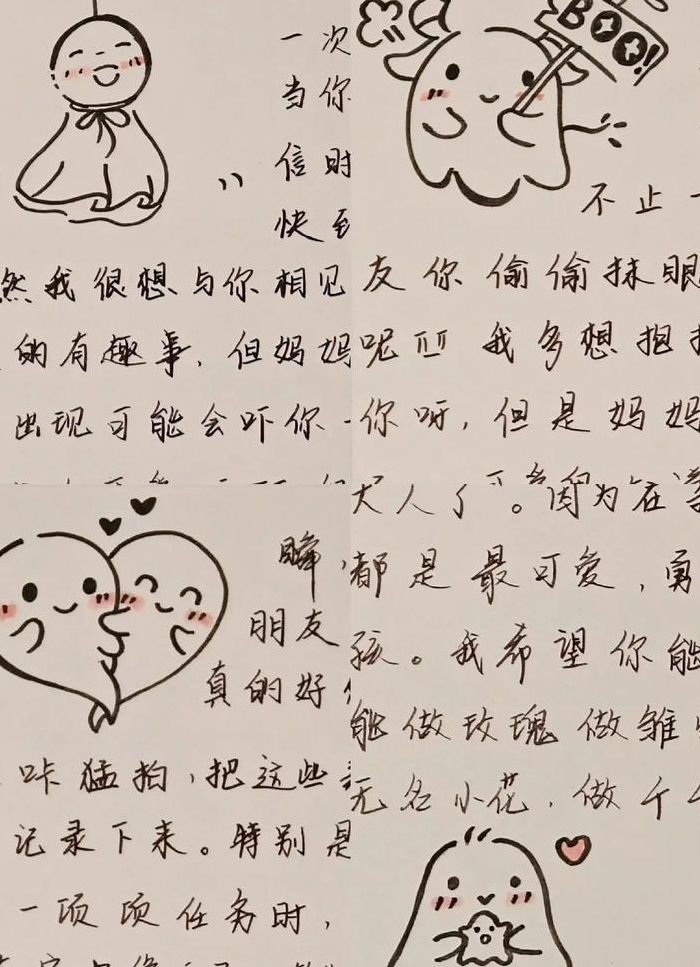 一次
当你
信时
快到
然我很想与你相见
的有趣事，但妈妈
出现可能会吓你一
BOO!
不止一
友你偷偷抹眼
呢 我多想抱
你呀，但是妈妈
大人了”。因为在
都是最可爱，勇
孩。我希望你能
能做玫瑰做雏
无名小花，做个
瞬
朋友
真的好
咔猛拍，把这些
记录下来。特别是
一项项任务时，